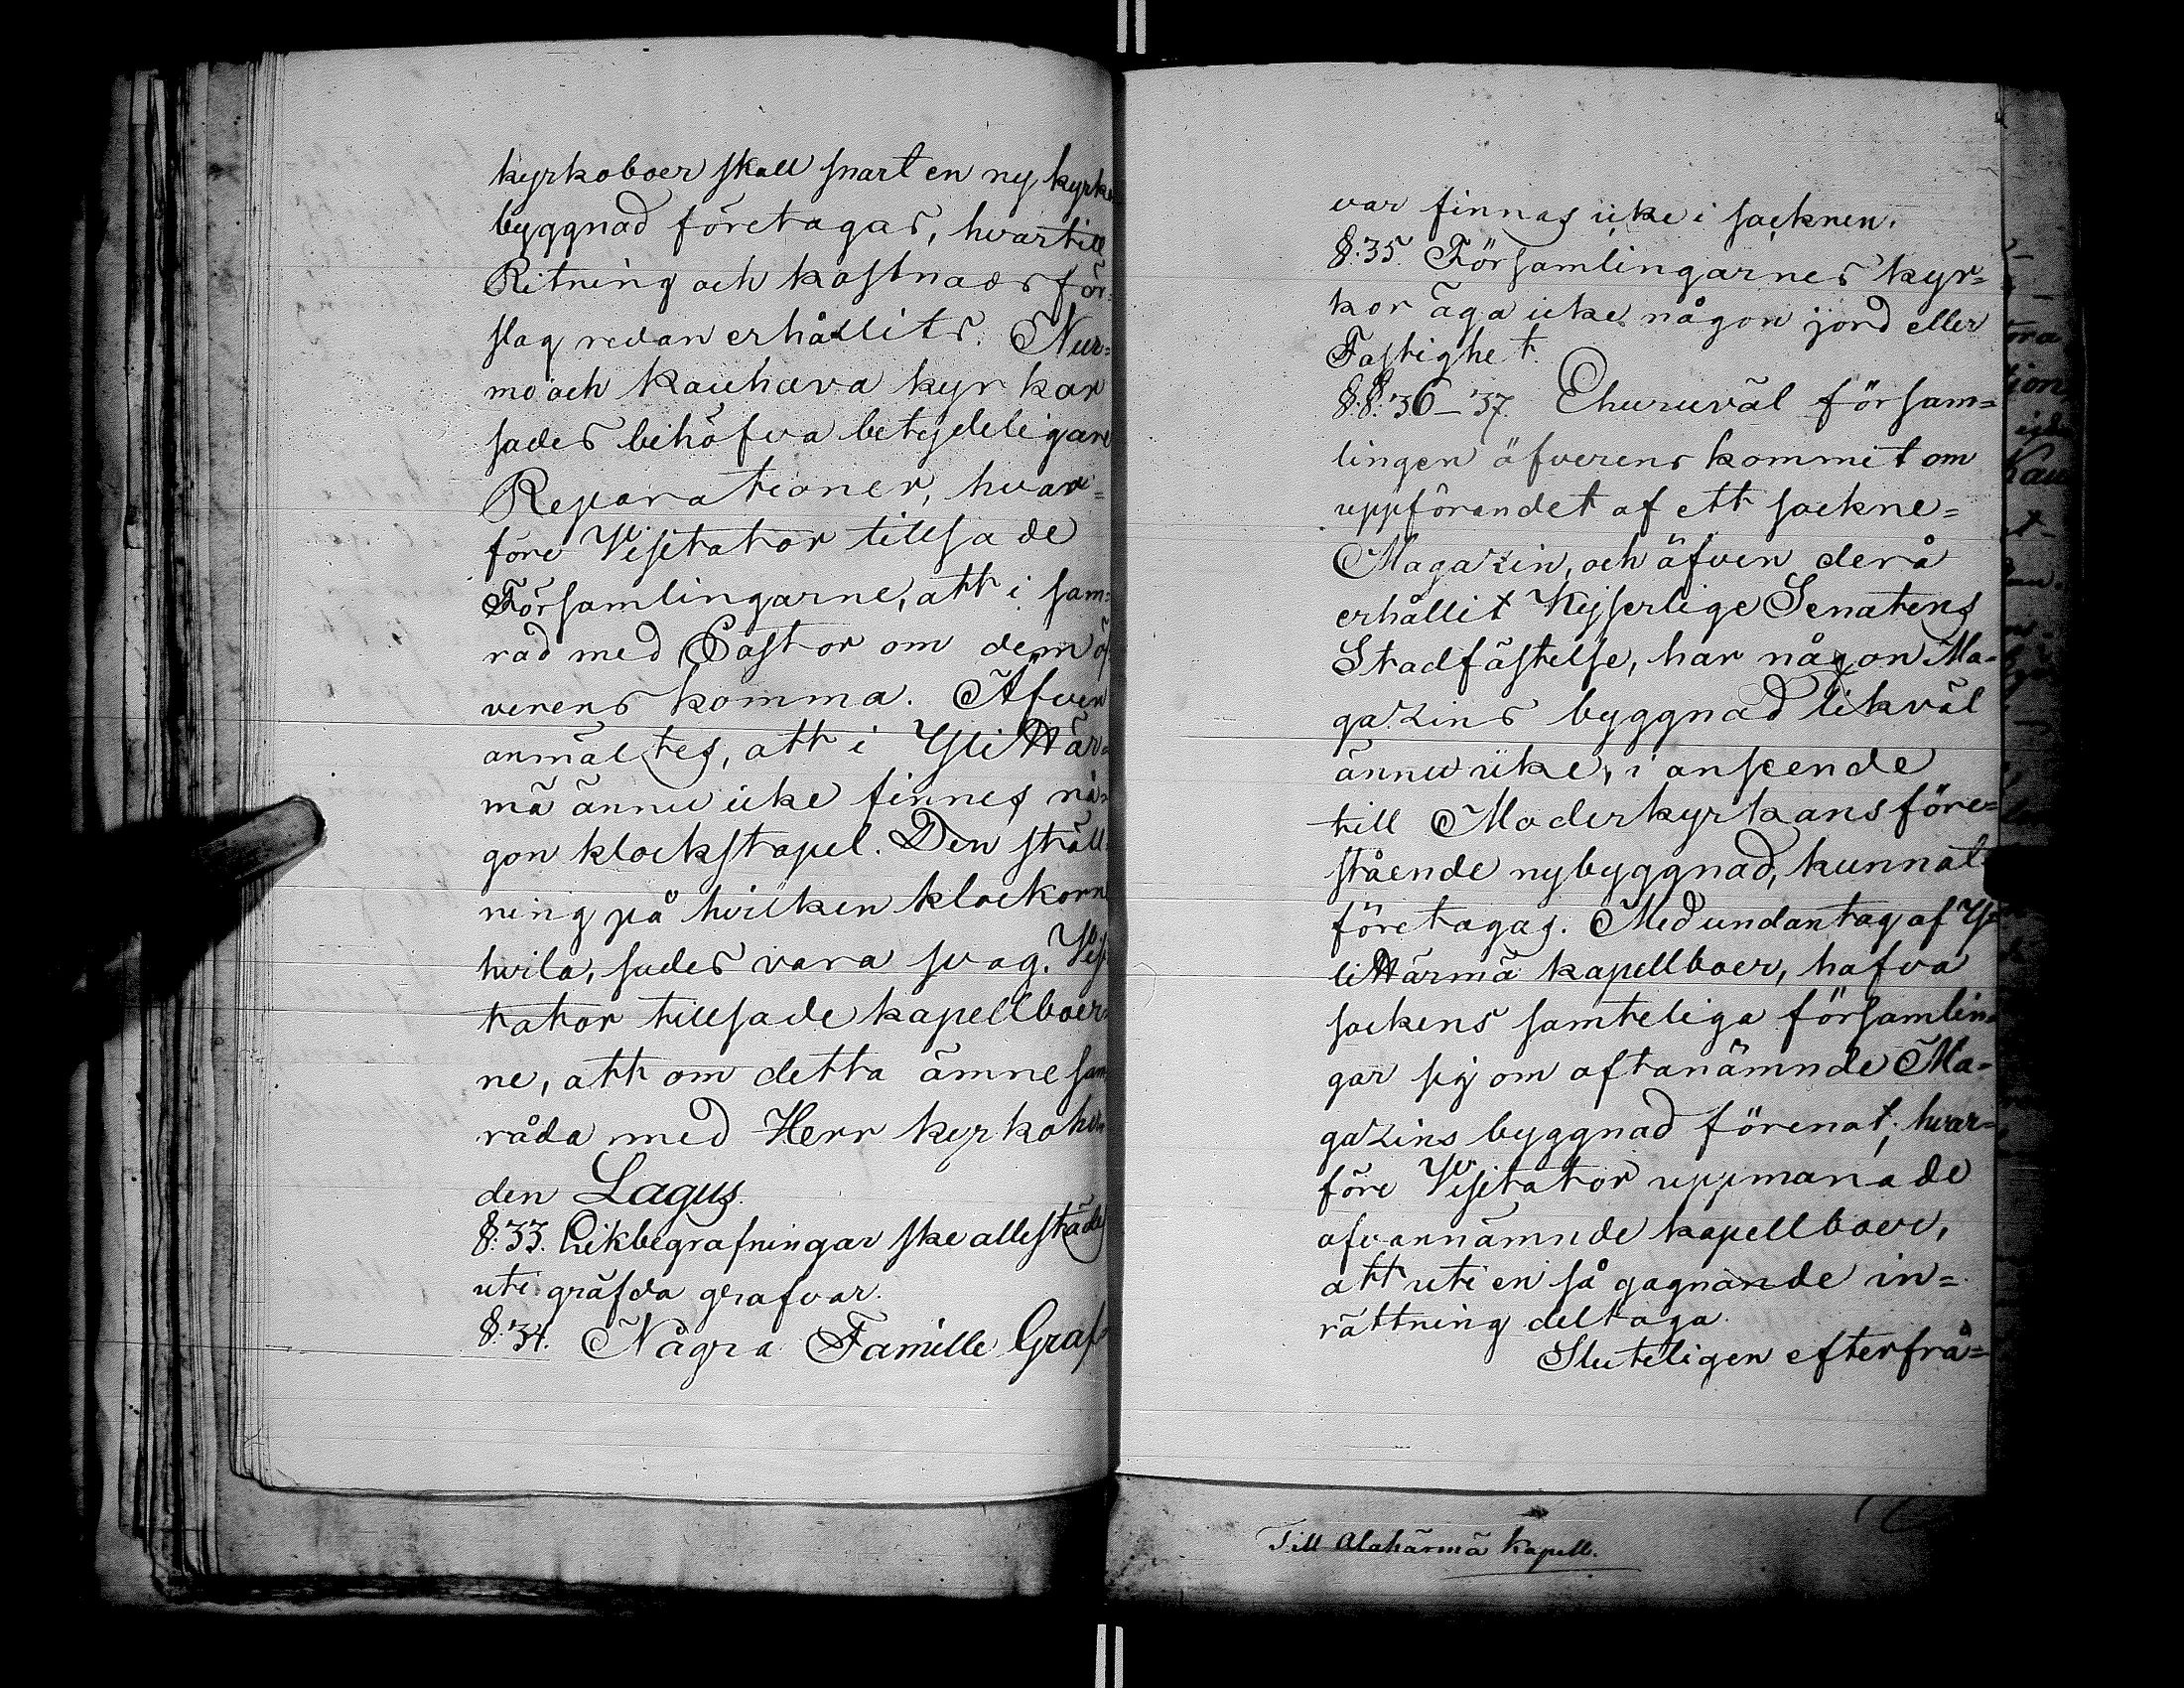 kyrkoboer skall snart en ny kyrko
byggnad företagas, hvartill
Ritning och kostnads för=
slag redan erhållits. Nur=
mo och Kauhava kyrkor
sades behöfva betydeligare
Reparationer, hvar=
före Visitator tillsade
Församlingarne, att i sam=
råd med Pastor om dem öf
verens komma. Äfven
anmältes, att i Yli Här=
mä ännu icke finnes nå=
gon klockstapel. Den ställ=
ning på hvilken klockorne
hvila, sades vara svag. Visi
tator tillsade kapellboer=
ne, att om detta ämne sam
råda med Herr kyrkoher
den Lagus.
§. 33. Likbegrafningar ske allestädes
uti gräfda grafvar.
§. 34. Några Famille Graf=
var finnas icke i socknen.
§. 35. Församlingarnes kyr=
kor äga icke någon jord eller
Fastighet.
§.§. 36–37. Ehuruväl försam=
lingen öfverens kommit om
uppförandet af ett sockne=
Magazin, och äfven derå
erhållit Kejserlige Senatens
Stadfästelse, har någon Ma=
gazins byggnad likväl
ännu icke, i anseende
till Moderkyrkans före=
stående nybyggnad, kunnat
företagas. Med undantag af Y=
li Härmä kapellboer, hafva
sockens samteliga församlin=
gar sig om oftanämnde Ma=
gazins byggnad förenat; hvar=
före Visitator uppmanade
ofvannämnde kapellboer,
att uti en så gagnande in=
rättning deltaga.
Sluteligen efterfrå=
Till Alahärmä Kapell.